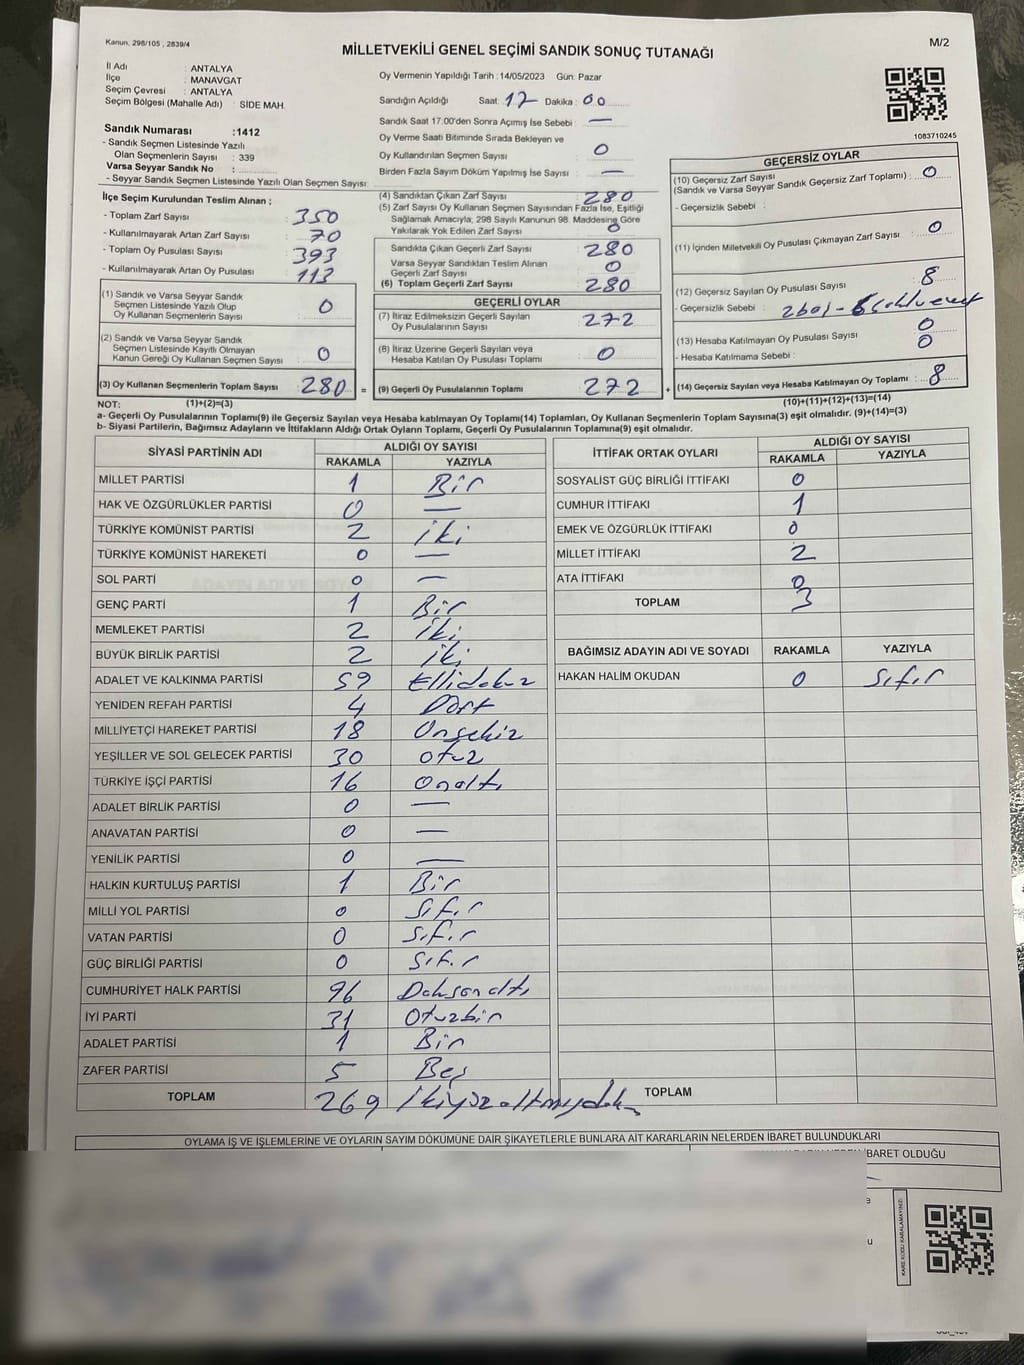 Kanun, 298/105 , 2839/4
M/2
MİLLETVEKİLİ GENEL SEÇİMİ SANDIK SONUÇ TUTANAĞI
İl Adı : ANTALYA
İlçe : MANAVGAT
Seçim Çevresi : ANTALYA
Seçim Bölgesi (Mahalle Adı) : SİDE MAH.
Sandık Numarası :1412
- Sandık Seçmen Listesinde Yazılı
Olan Seçmenlerin Sayısı : 339
Varsa Seyyar Sandık No :
- Seyyar Sandık Seçmen Listesinde Yazılı Olan Seçmen Sayısı:
Oy Vermenin Yapıldığı Tarih :14/05/2023 Gün: Pazar
Sandığın Açıldığı Saat: 17 Dakika : 00
Sandık Saat 17.00'den Sonra Açımış İse Sebebi : —
Oy Verme Saati Bitiminde Sırada Bekleyen ve
Oy Kullandırılan Seçmen Sayısı : 0
Birden Fazla Sayım Döküm Yapılmış İse Sayısı : —
1083710245
İlçe Seçim Kurulundan Teslim Alınan ;
- Toplam Zarf Sayısı : 350
- Kullanılmayarak Artan Zarf Sayısı : 70
- Toplam Oy Pusulası Sayısı : 393
- Kullanılmayarak Artan Oy Pusulası : 113
(1) Sandık ve Varsa Seyyar Sandık
Seçmen Listesinde Yazılı Olup
Oy Kullanan Seçmenlerin Sayısı : 0
(2) Sandık ve Varsa Seyyar Sandık
Seçmen Listesinde Kayıtlı Olmayan
Kanun Gereği Oy Kullanan Seçmen Sayısı : 0
(3) Oy Kullanan Seçmenlerin Toplam Sayısı : 280 =
(4) Sandıktan Çıkan Zarf Sayısı : 280
(5) Zarf Sayısı Oy Kullanan Seçmen Sayısından Fazla İse, Eşitliği
Sağlamak Amacıyla; 298 Sayılı Kanunun 98. Maddesine Göre
Yakılarak Yok Edilen Zarf Sayısı : 0
Sandıkta Çıkan Geçerli Zarf Sayısı : 280
Varsa Seyyar Sandıktan Teslim Alınan
Geçerli Zarf Sayısı : 0
(6) Toplam Geçerli Zarf Sayısı : 280
GEÇERLİ OYLAR
(7) İtiraz Edilmeksizin Geçerli Sayılan
Oy Pusulalarının Sayısı : 272
(8) İtiraz Üzerine Geçerli Sayılan veya
Hesaba Katılan Oy Pusulası Toplamı : 0
(9) Geçerli Oy Pusulalarının Toplamı : 272 +
GEÇERSİZ OYLAR
(10) Geçersiz Zarf Sayısı
(Sandık ve Varsa Seyyar Sandık Geçersiz Zarf Toplamı) : 0
- Geçersizlik Sebebi :
(11) İçinden Milletvekili Oy Pusulası Çıkmayan Zarf Sayısı : 0
(12) Geçersiz Sayılan Oy Pusulası Sayısı : 8
- Geçersizlik Sebebi :
(13) Hesaba Katılmayan Oy Pusulası Sayısı : 0
- Hesaba Katılmama Sebebi : 0
(14) Geçersiz Sayılan veya Hesaba Katılmayan Oy Toplamı : 8
NOT: (1)+(2)=(3)
(10)+(11)+(12)+(13)=(14)
a- Geçerli Oy Pusulalarının Toplamı(9) ile Geçersiz Sayılan veya Hesaba katılmayan Oy Toplamı(14) Toplamları, Oy Kullanan Seçmenlerin Toplam Sayısına(3) eşit olmalıdır. (9)+(14)=(3)
b- Siyasi Partilerin, Bağımsız Adayların ve İttifakların Aldığı Ortak Oyların Toplamı, Geçerli Oy Pusulalarının Toplamına(9) eşit olmalıdır.
SİYASİ PARTİNİN ADI ALDIĞI OY SAYISI
RAKAMLA YAZIYLA
MİLLET PARTİSİ 1 Bir
HAK VE ÖZGÜRLÜKLER PARTİSİ 0 —
TÜRKİYE KOMÜNİST PARTİSİ 2 iki
TÜRKİYE KOMÜNİST HAREKETİ 0 —
SOL PARTİ 0 —
GENÇ PARTİ 1 Bir
MEMLEKET PARTİSİ 2 iki
BÜYÜK BİRLİK PARTİSİ 2 iki
ADALET VE KALKINMA PARTİSİ 59 Ellidokuz
YENİDEN REFAH PARTİSİ 4 Dört
MİLLİYETÇİ HAREKET PARTİSİ 18 Onsekiz
YEŞİLLER VE SOL GELECEK PARTİSİ 30 otuz
TÜRKİYE İŞÇİ PARTİSİ 16 Onaltı
ADALET BİRLİK PARTİSİ 0 —
ANAVATAN PARTİSİ 0 —
YENİLİK PARTİSİ 0 —
HALKIN KURTULUŞ PARTİSİ 1 Bir
MİLLİ YOL PARTİSİ 0 Sıfır
VATAN PARTİSİ 0 Sıfır
GÜÇ BİRLİĞİ PARTİSİ 0 Sıfır
CUMHURİYET HALK PARTİSİ 96 Doksanaltı
İYİ PARTİ 31 Otuzbir
ADALET PARTİSİ 1 Bir
ZAFER PARTİSİ 5 Beş
TOPLAM 269 İkiyüzaltmışdokuz
İTTİFAK ORTAK OYLARI ALDIĞI OY SAYISI
RAKAMLA YAZIYLA
SOSYALİST GÜÇ BİRLİĞİ İTTİFAKI 0
CUMHUR İTTİFAKI 1
EMEK VE ÖZGÜRLÜK İTTİFAKI 0
MİLLET İTTİFAKI 2
ATA İTTİFAKI 0
TOPLAM 3
BAĞIMSIZ ADAYIN ADI VE SOYADI RAKAMLA YAZIYLA
HAKAN HALİM OKUDAN 0 Sıfır
TOPLAM
OYLAMA İŞ VE İŞLEMLERİNE VE OYLARIN SAYIM DÖKÜMÜNE DAİR ŞİKAYETLERLE BUNLARA AİT KARARLARIN NELERDEN İBARET BULUNDUKLARI
İBARET OLDUĞU
KARE KODU KARALAMAYINIZ!